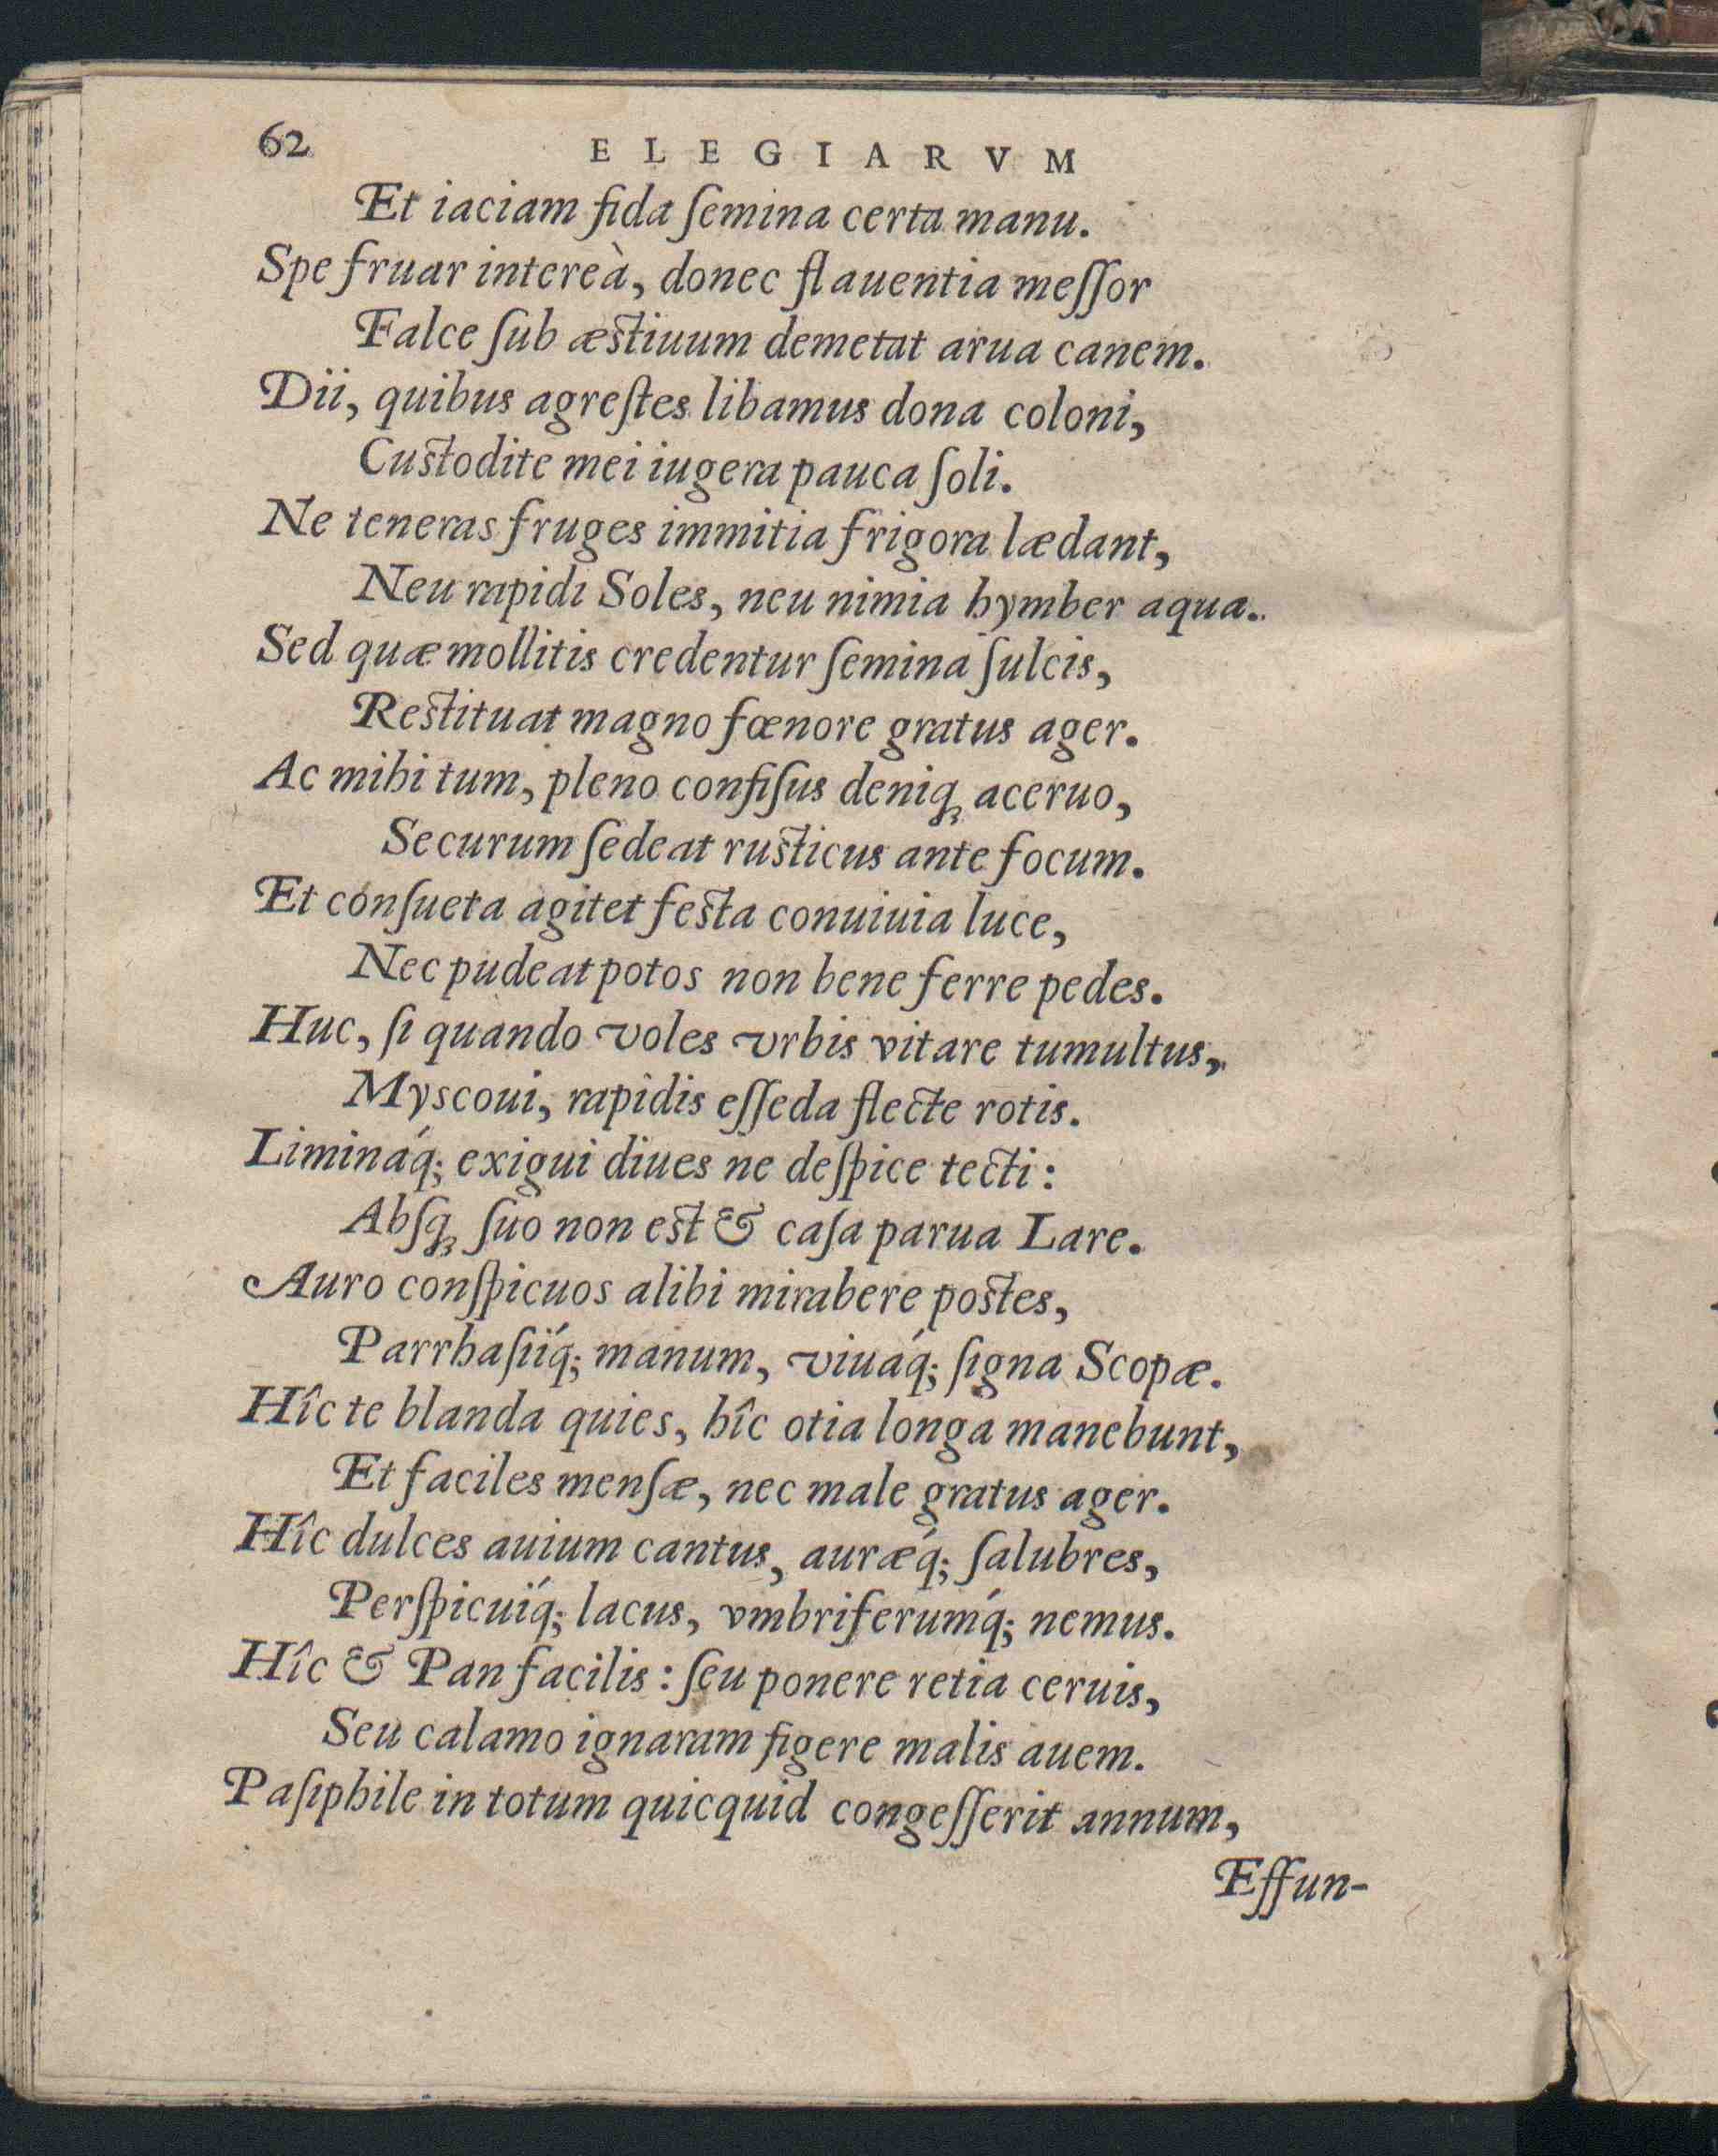 62 ELEGIARVM
Et iaciam fida ſemina certa manu.
Spe fruar intereà, donec flauentia meſſor
Falce ſub æstiuum demetat arua canem.
Dii, quibus agreſtes libamus dona coloni,
Custodite mei iugera pauca ſoli.
Ne teneras fruges immitia frigora lædant,
Neu rapidi Soles, neu nimia hymber aqua.
Sed quæ mollitis credentur ſemina ſulcis,
Restituat magno fœnore gratus ager.
Ac mihi tum, pleno confiſus deniq́ꝫ aceruo,
Securum ſedeat rusticus ante focum.
Et conſueta agitet festa conuiuia luce,
Nec pudeat potos non bene ferre pedes.
Huc, ſi quando voles vrbis vitare tumultus,
Myscoui, rapidis eſſeda flecte rotis.
Limináq; exigui diues ne deſpice tecti:
Abſqꝫ ſuo non est & caſa parua Lare.
Auro conſpicuos alibi mirabere postes,
Parrhaſiíq; manum, viuáq; ſigna Scopæ.
Hîc te blanda quies, hîc otia longa manebunt,
Et faciles menſæ, nec male gratus ager.
Hîc dulces auium cantus, auræq́; ſalubres,
Perſpicuíq; lacus, vmbriferumq́; nemus.
Hîc & Pan facilis: ſeu ponere retia ceruis,
Seu calamo ignaram figere malis auem.
Paſiphile in totum quicquid congeſſerit annum,
Effun-